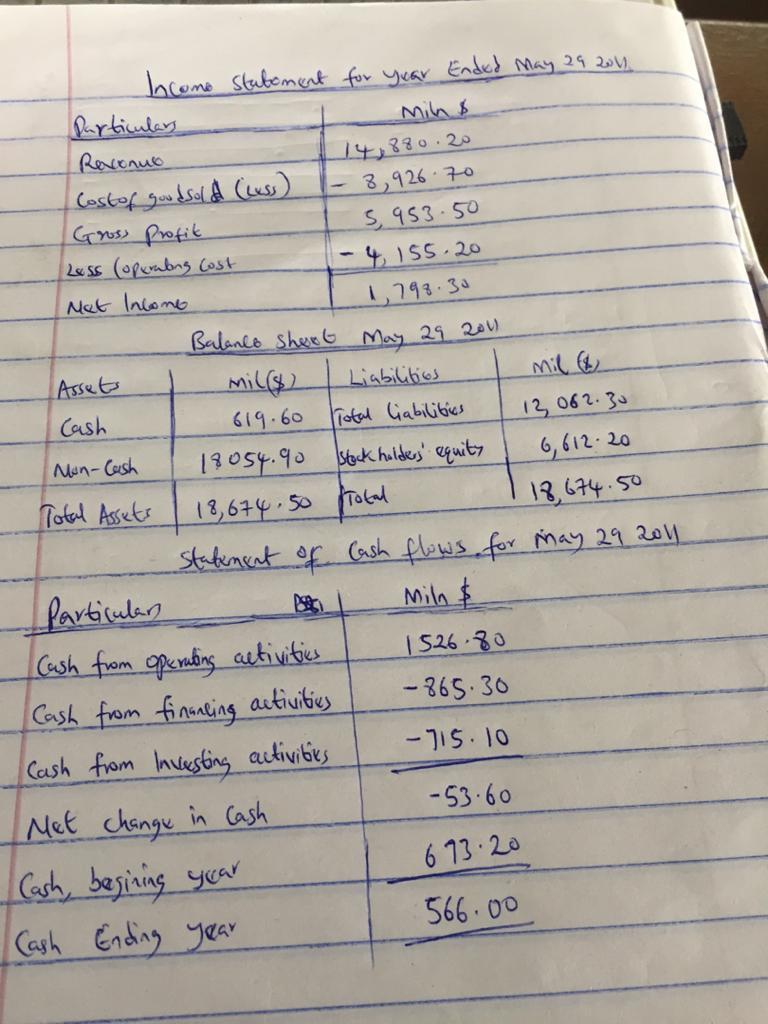 Income Statement for year Ended May 29 2011
Particulars Miln $
Revenue 14,880.20
Cost of goods sold (Less) - 8,926.70
Gross Profit 5,953.50
Less (operating cost - 4,155.20
Net Income 1,798.30
Balance sheet May 29 2011
Assets Mil($) Liabilities Mil ($)
Cash 619.60 Total Liabilities 12,062.30
Non-Cash 18054.90 Stockholders' equity 6,612.20
Total Assets 18,674.50 Total 18,674.50
Statement of Cash flows for May 29 2011
Particulars Miln $
Cash from operating activities 1526.80
Cash from financing activities -865.30
Cash from Investing activities -715.10
Net change in Cash -53.60
Cash, begining year 673.20
Cash Ending year 566.00